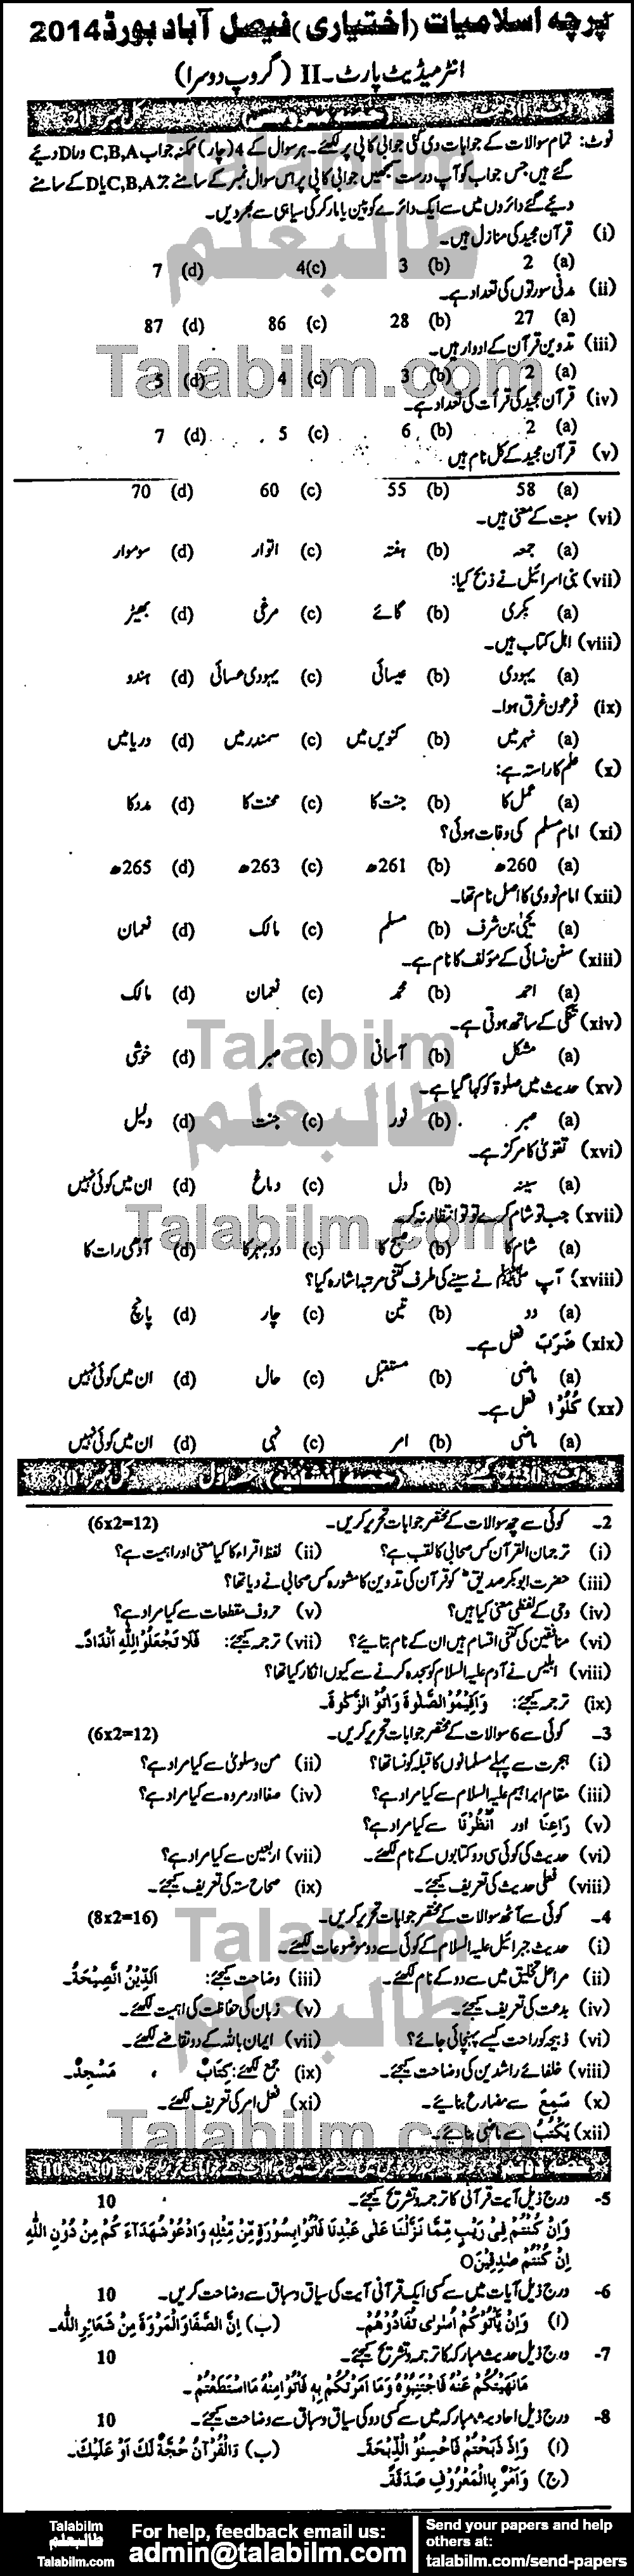 پرچہ اسلامیات (اختیاری) فیصل آباد بورڈ 2014
انٹرمیڈیٹ پارٹ۔ II (گروپ دوسرا)
کل نمبر: 20
نوٹ: تمام سوالات کے جوابات دی گئی جوابی کاپی پر لکھئے۔ ہر سوال کے 4 (چار) ممکنہ جواب C,B,A اور D دیئے
گئے ہیں جس جواب کو آپ درست سمجھیں جوابی کاپی پر اس سوال نمبر کے سامنے C,B,A یا D کے سامنے
دیئے گئے دائروں میں سے ایک دائرے کو پین یا مارکر کی سیاہی سے بھر دیں۔
(i) قرآن مجید کی منازل ہیں۔
(a) 2 (b) 3 (c) 4 (d) 7
(ii) مدنی سورتوں کی تعداد ہے۔
(a) 27 (b) 28 (c) 86 (d) 87
(iii) تدوین قرآن کے ادوار ہیں۔
(a) 2 (b) 3 (c) 4 (d) 5
(iv) قرآن مجید کی قرأت کی تعداد ہے۔
(a) 2 (b) 6 (c) 5 (d) 7
(v) قرآن مجید کے کل نام ہیں
(a) 58 (b) 55 (c) 60 (d) 70
(vi) سبت کے معنی ہیں۔
(a) جمعہ (b) ہفتہ (c) اتوار (d) سوموار
(vii) بنی اسرائیل نے ذبح کیا:
(a) بکری (b) گائے (c) مرغی (d) بھیڑ
(viii) اہل کتاب ہیں۔
(a) یہودی (b) عیسائی (c) یہودی عسائی (d) ہندو
(ix) فرعون غرق ہوا۔
(a) نہر میں (b) کنویں میں (c) سمندر میں (d) دریا میں
(x) علم کا راستہ ہے:
(a) عمل کا (b) جنت کا (c) محنت کا (d) مدد کا
(xi) امام مسلم کی وفات ہوئی؟
(a) 260ھ (b) 261ھ (c) 263ھ (d) 265ھ
(xii) امام نووی کا اصل نام تھا۔
(a) یحییٰ بن شرف (b) مسلم (c) مالک (d) نعمان
(xiii) سنن نسائی کے مؤلف کا نام ہے۔
(a) احمد (b) محمد (c) نعمان (d) مالک
(xiv) تنگی کے ساتھ ہوتی ہے۔
(a) مشکل (b) آسانی (c) صبر (d) خوشی
(xv) حدیث میں صلوۃ کو کہا گیا ہے۔
(a) صبر (b) نور (c) جنت (d) دلیل
(xvi) تقویٰ کا مرکز ہے۔
(a) سینہ (b) دل (c) دماغ (d) ان میں کوئی نہیں
(xvii) جب تو شام کرے تو تو انتظار نہ کر۔
(a) شام کا (b) صبح کا (c) دوپہر کا (d) آدھی رات کا
(xviii) آپ ﷺ نے سینے کی طرف کتنی مرتبہ اشارہ کیا؟
(a) دو (b) تین (c) چار (d) پانچ
(xix) ضَرَبَ فعل ہے۔
(a) ماضی (b) مستقبل (c) حال (d) ان میں کوئی نہیں
(xx) کُلُوْا فعل ہے۔
(a) ماضی (b) امر (c) نہی (d) ان میں کوئی نہیں
وقت 2-30 گھنٹے (حصہ انشائیہ) حصہ اول کل نمبر: 80
2۔ کوئی سے چھ سوالات کے مختصر جوابات تحریر کریں۔ (6x2=12)
(i) ترجمان القرآن کس صحابی کا لقب ہے؟ (ii) لفظ اقراء کا کیا معنی اور اہمیت ہے؟
(iii) حضرت ابوبکر صدیقؓ کو قرآن کی تدوین کا مشورہ کس صحابی نے دیا تھا؟
(iv) وحی کے لفظی معنی کیا ہیں؟ (v) حروف مقطعات سے کیا مراد ہے؟
(vi) منافقین کی کتنی اقسام ہیں ان کے نام بتائیے؟ (vii) ترجمہ کیجئے: فَلَا تَجْعَلُوْا لِلّٰہِ اَنْدَادًا۔
(viii) ابلیس نے آدم علیہ السلام کو سجدہ کرنے سے کیوں انکار کیا تھا؟
(ix) ترجمہ کیجئے: وَاَقِیْمُوا الصَّلٰوۃَ وَاٰتُوا الزَّکٰوۃَ۔
3۔ کوئی سے 6 سوالات کے مختصر جوابات تحریر کریں۔ (6x2=12)
(i) ہجرت سے پہلے مسلمانوں کا قبلہ کونسا تھا؟ (ii) من و سلویٰ سے کیا مراد ہے؟
(iii) مقام ابراہیم علیہ السلام سے کیا مراد ہے؟ (iv) صفا اور مروہ سے کیا مراد ہے؟
(v) رَاعِنَا اور اُنْظُرْنَا سے کیا مراد ہے؟
(vi) حدیث کی کوئی سی دو کتابوں کے نام لکھئے۔ (vii) اربعین سے کیا مراد ہے؟
(viii) فعلی حدیث کی تعریف کیجئے۔ (ix) صحاح ستہ کی تعریف کیجئے۔
4۔ کوئی سے آٹھ سوالات کے مختصر جوابات تحریر کریں۔ (8x2=16)
(i) حدیث جبرائیل علیہ السلام کے کوئی سے دو موضوعات لکھئے۔
(ii) مراحل تخلیق میں سے دو کے نام لکھئے۔ (iii) وضاحت کیجئے: اَلدِّیْنُ النَّصِیْحَۃُ۔
(iv) بدعت کی تعریف کیجئے۔ (v) زبان کی حفاظت کی اہمیت لکھئے۔
(vi) ذبیحہ کو راحت کیسے پہنچائی جائے؟ (vii) ایمان باللہ کے دو تقاضے لکھئے۔
(viii) خلفائے راشدین کی وضاحت کیجئے۔ (ix) جمع لکھئے: کِتَابٌ ، مَسْجِدٌ۔
(x) سَمِعَ سے مضارع بنائیے۔ (xi) فعل امر کی تعریف لکھئے۔
(xii) یَکْتُبُ سے ماضی بنائیے۔
5۔ درج ذیل آیت قرآنی کا ترجمہ و تشریح کیجئے۔ 10
وَاِنْ کُنْتُمْ فِیْ رَیْبٍ مِّمَّا نَزَّلْنَا عَلٰی عَبْدِنَا فَاْتُوْا بِسُوْرَۃٍ مِّنْ مِّثْلِہٖ وَادْعُوْا شُھَدَآءَ کُمْ مِنْ دُوْنِ اللّٰہِ
اِنْ کُنْتُمْ صٰدِقِیْنَ
6۔ درج ذیل آیات میں سے کسی ایک قرآنی آیت کی سیاق و سباق سے وضاحت کریں۔ 10
(ا) وَاِنْ یَّاْتُوْکُمْ اُسٰرٰی تُفَادُوْھُمْ۔ (ب) اِنَّ الصَّفَا وَالْمَرْوَۃَ مِنْ شَعَائِرِ اللّٰہِ۔
7۔ درج ذیل حدیث مبارکہ کا ترجمہ و تشریح کیجئے۔ 10
مَا نَھَیْتُکُمْ عَنْہُ فَاجْتَنِبُوْہُ وَمَا اَمَرْتُکُمْ بِہٖ فَاْتُوْا مِنْہُ مَا اسْتَطَعْتُمْ۔
8۔ درج ذیل احادیث مبارکہ میں سے کسی دو کی سیاق و سباق سے وضاحت کیجئے۔ 10
(ا) وَاِذَ ذَبَحْتُمْ فَاَحْسِنُوا الذِّبْحَۃَ۔ (ب) وَالْقُرْآنُ حُجَّۃٌ لَّکَ اَوْ عَلَیْکَ۔
(ج) وَاَمْرٌ بِالْمَعْرُوْفِ صَدَقَۃٌ۔
Talabilm
طالبعلم
Talabilm.com
For help, feedback email us:
admin@talabilm.com
Send your papers and help
others at:
talabilm.com/send-papers